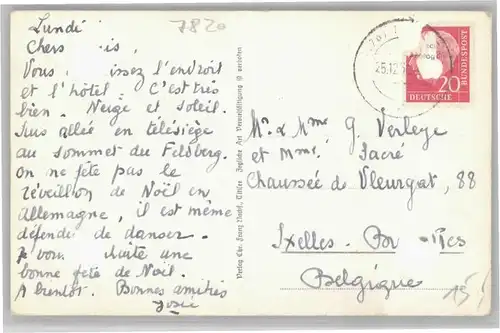 Lundi
7820
Chers is,
Vous issez l'endroit
et l'hôtel. C'est très
bien. Neige et soleil.
Suis allée en télésiège
au sommet du Feldberg.
On ne fête pas le
réveillon de Noël en
Allemagne, il est même
défendu de danser.
Je vous souhaite une
bonne fête de Noël.
A bientôt. Bonnes amitiés
Josée
Verlag Ebr. Franz Titisee.
25.12.5
DEUTSCHE BUNDESPOST
20
Mr & Mme G. Verleye
et Mme Sacré
Chaussée de Vleurgat, 88
Ixelles - Bruxelles
Belgique
15